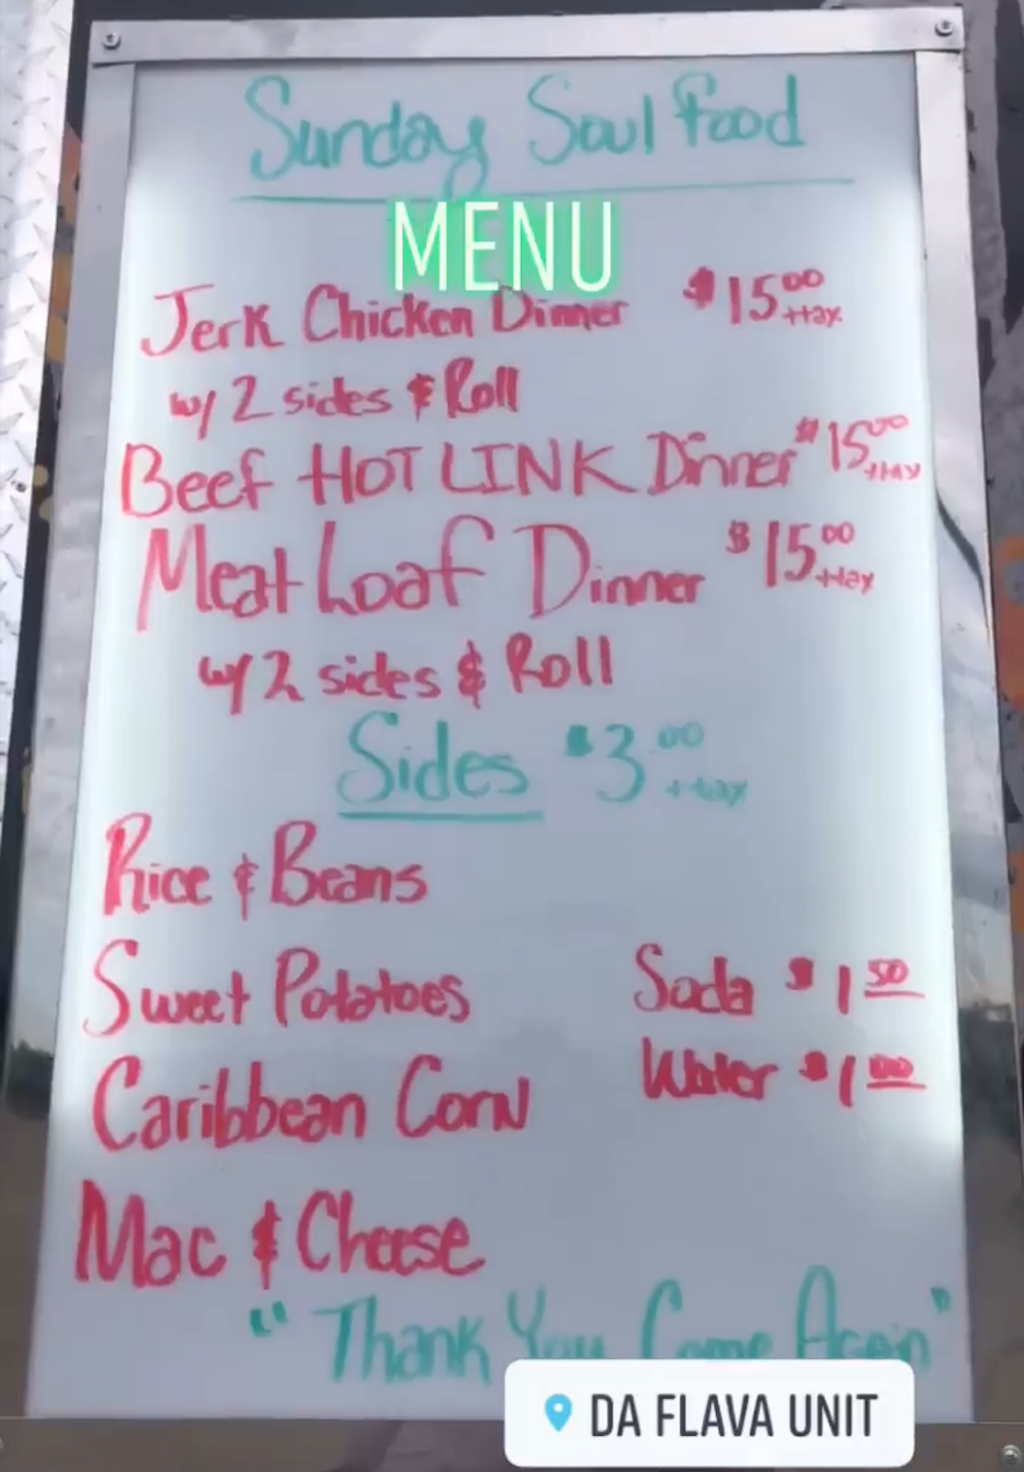 Sunday Soul Food
MENU
Jerk Chicken Dinner $15.00 +tax
w/ 2 sides & Roll
Beef HOT LINK Dinner $15.00 +tax
Meat Loaf Dinner $15.00 +tax
w/ 2 sides & Roll
Sides $3.00 +tax
Rice & Beans
Sweet Potatoes
Soda $1.50
Caribbean Corn
Water $1.00
Mac & Cheese
"Thank You Come Again"
DA FLAVA UNIT